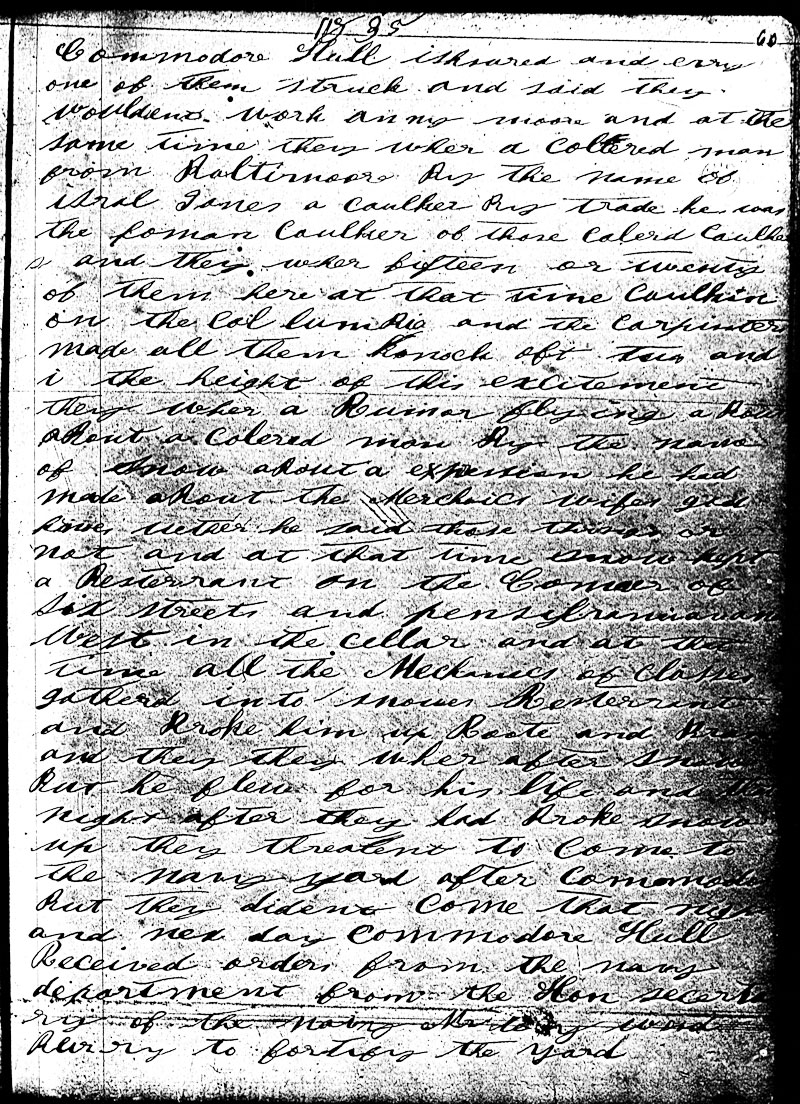 1835
60
Commodore Hull ishured and evry
one of them struck and said they
wouldent work anny moore and at the
same time they wher a collered man
from Baltimoore By the name of
isral Jones a caulker By trade he was
the foman Caulker of those Colerd Caulker
s and they wher fifteen or twenty
of them here at that time Caulkin
on the Col lumBia and the Carpinters
made all them knock oft two and
i the height of this excitement
they wher a Rumor flying a Bout
aBout a Colered man By the name
of Snow aBout a expression he had
made aBout the Mechanics wifes god
knows wether he said those things or
not and at that time snow kept
a Resterrant on the Corner of
Six streets and pensilvania
West in the cellar and at that
time all the Mechanics of classes
gatherd into snows Resterrant
and Broke him up Roote and Bran
and they they wher after snow
But he flew for his life and that
night after they had Broke snow
up they threatent to Come to
the navy yard after Commodo
But they dident Come that night
and nex day Commodore Hull
Received orders from the navy
department from the Hon secerta
ry of the navy Mr wood
Burry to fortify the yard